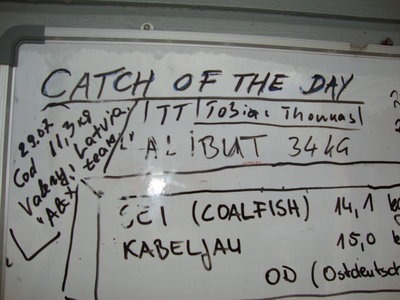 CATCH OF THE DAY
TT Tobias Thomas
ALIBUT 34 KG
29.07
Cod 11,3 kg
Valery, Latvia
team
SEI (COALFISH) 14,1 kg
KABELJAU 15,0 k
OD (Ostdeutsch